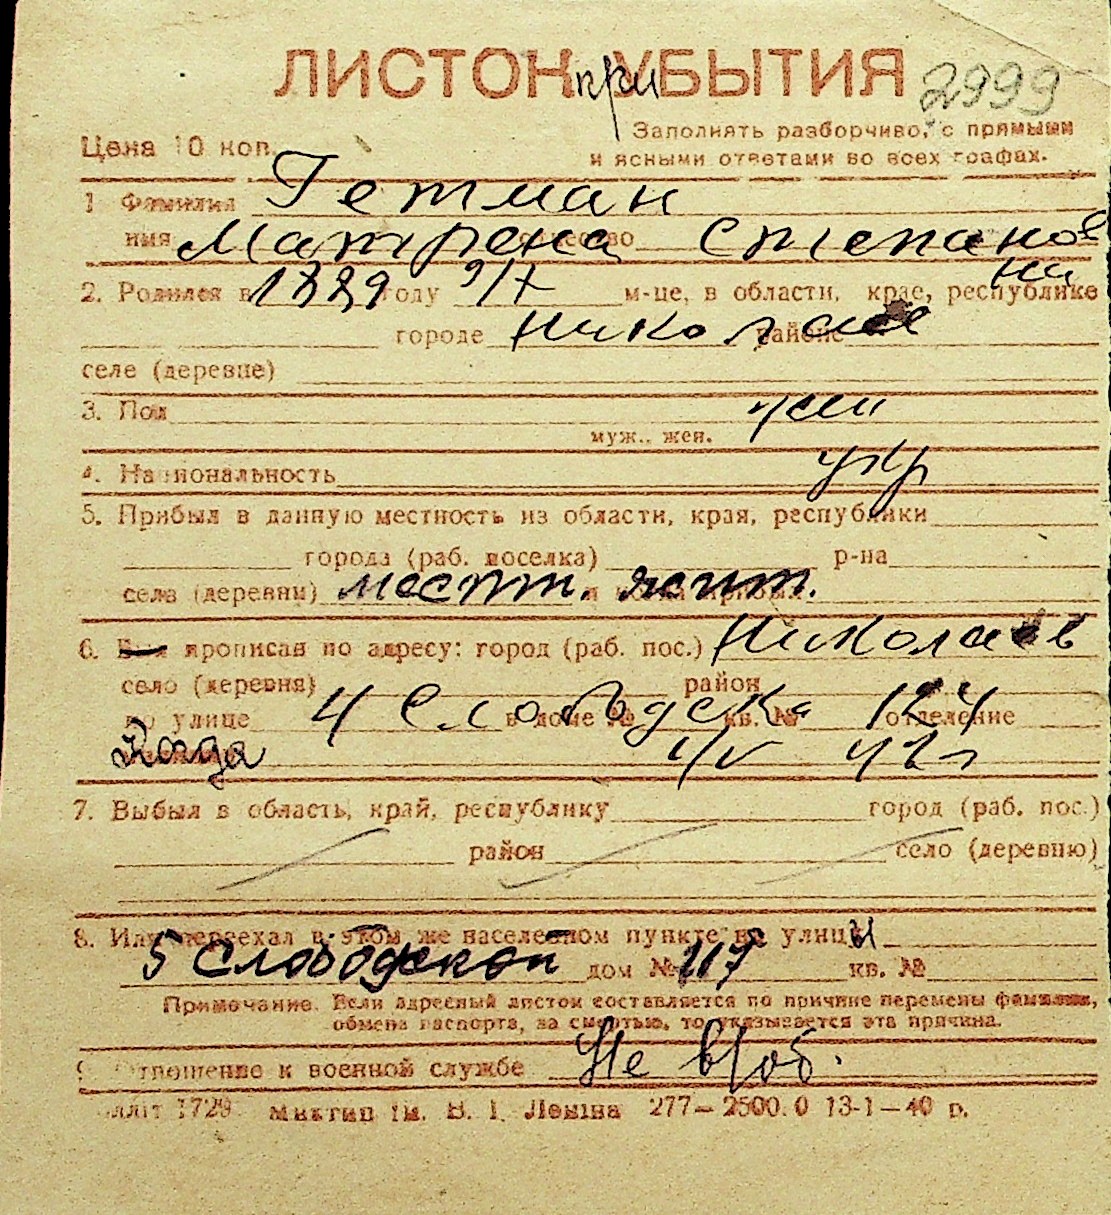 ЛИСТОК при УБЫТИЯ 2999
Цена 10 коп. Заполнять разборчиво, с прямыми
и ясными ответами во всех графах.
1 Фамилия Гетман
имя Матрена отчество Степанов
на
2. Родился в 1889 году 9/X м-це, в области, крае, республике
городе Николаев районе
селе (деревне)
3. Пол жен
муж.. жен.
4. Национальность укр
5. Прибыл в данную местность из области, края, республики
города (раб. поселка) р-на
села (деревни) местн. жит.
6. Был прописан по адресу: город (раб. пос.) Николаев
село (деревня) район
по улице 4 Слободска в доме № кв. № 124 отделение
7. Выбыл в область, край, республику город (раб. пос.)
район село (деревню)
8. Или переехал в этом же населенном пункте на улицу
5 Слободской дом № 117 кв. №
Примечание. Если адресный листок составляется по причине перемены фамилии,
обмена паспорта, за смертью, то указывается эта причина.
Отношение к военной службе Не в/об.
1729 Миктип ім. В. І. Леніна 277—2500.0 13-1—40 р.